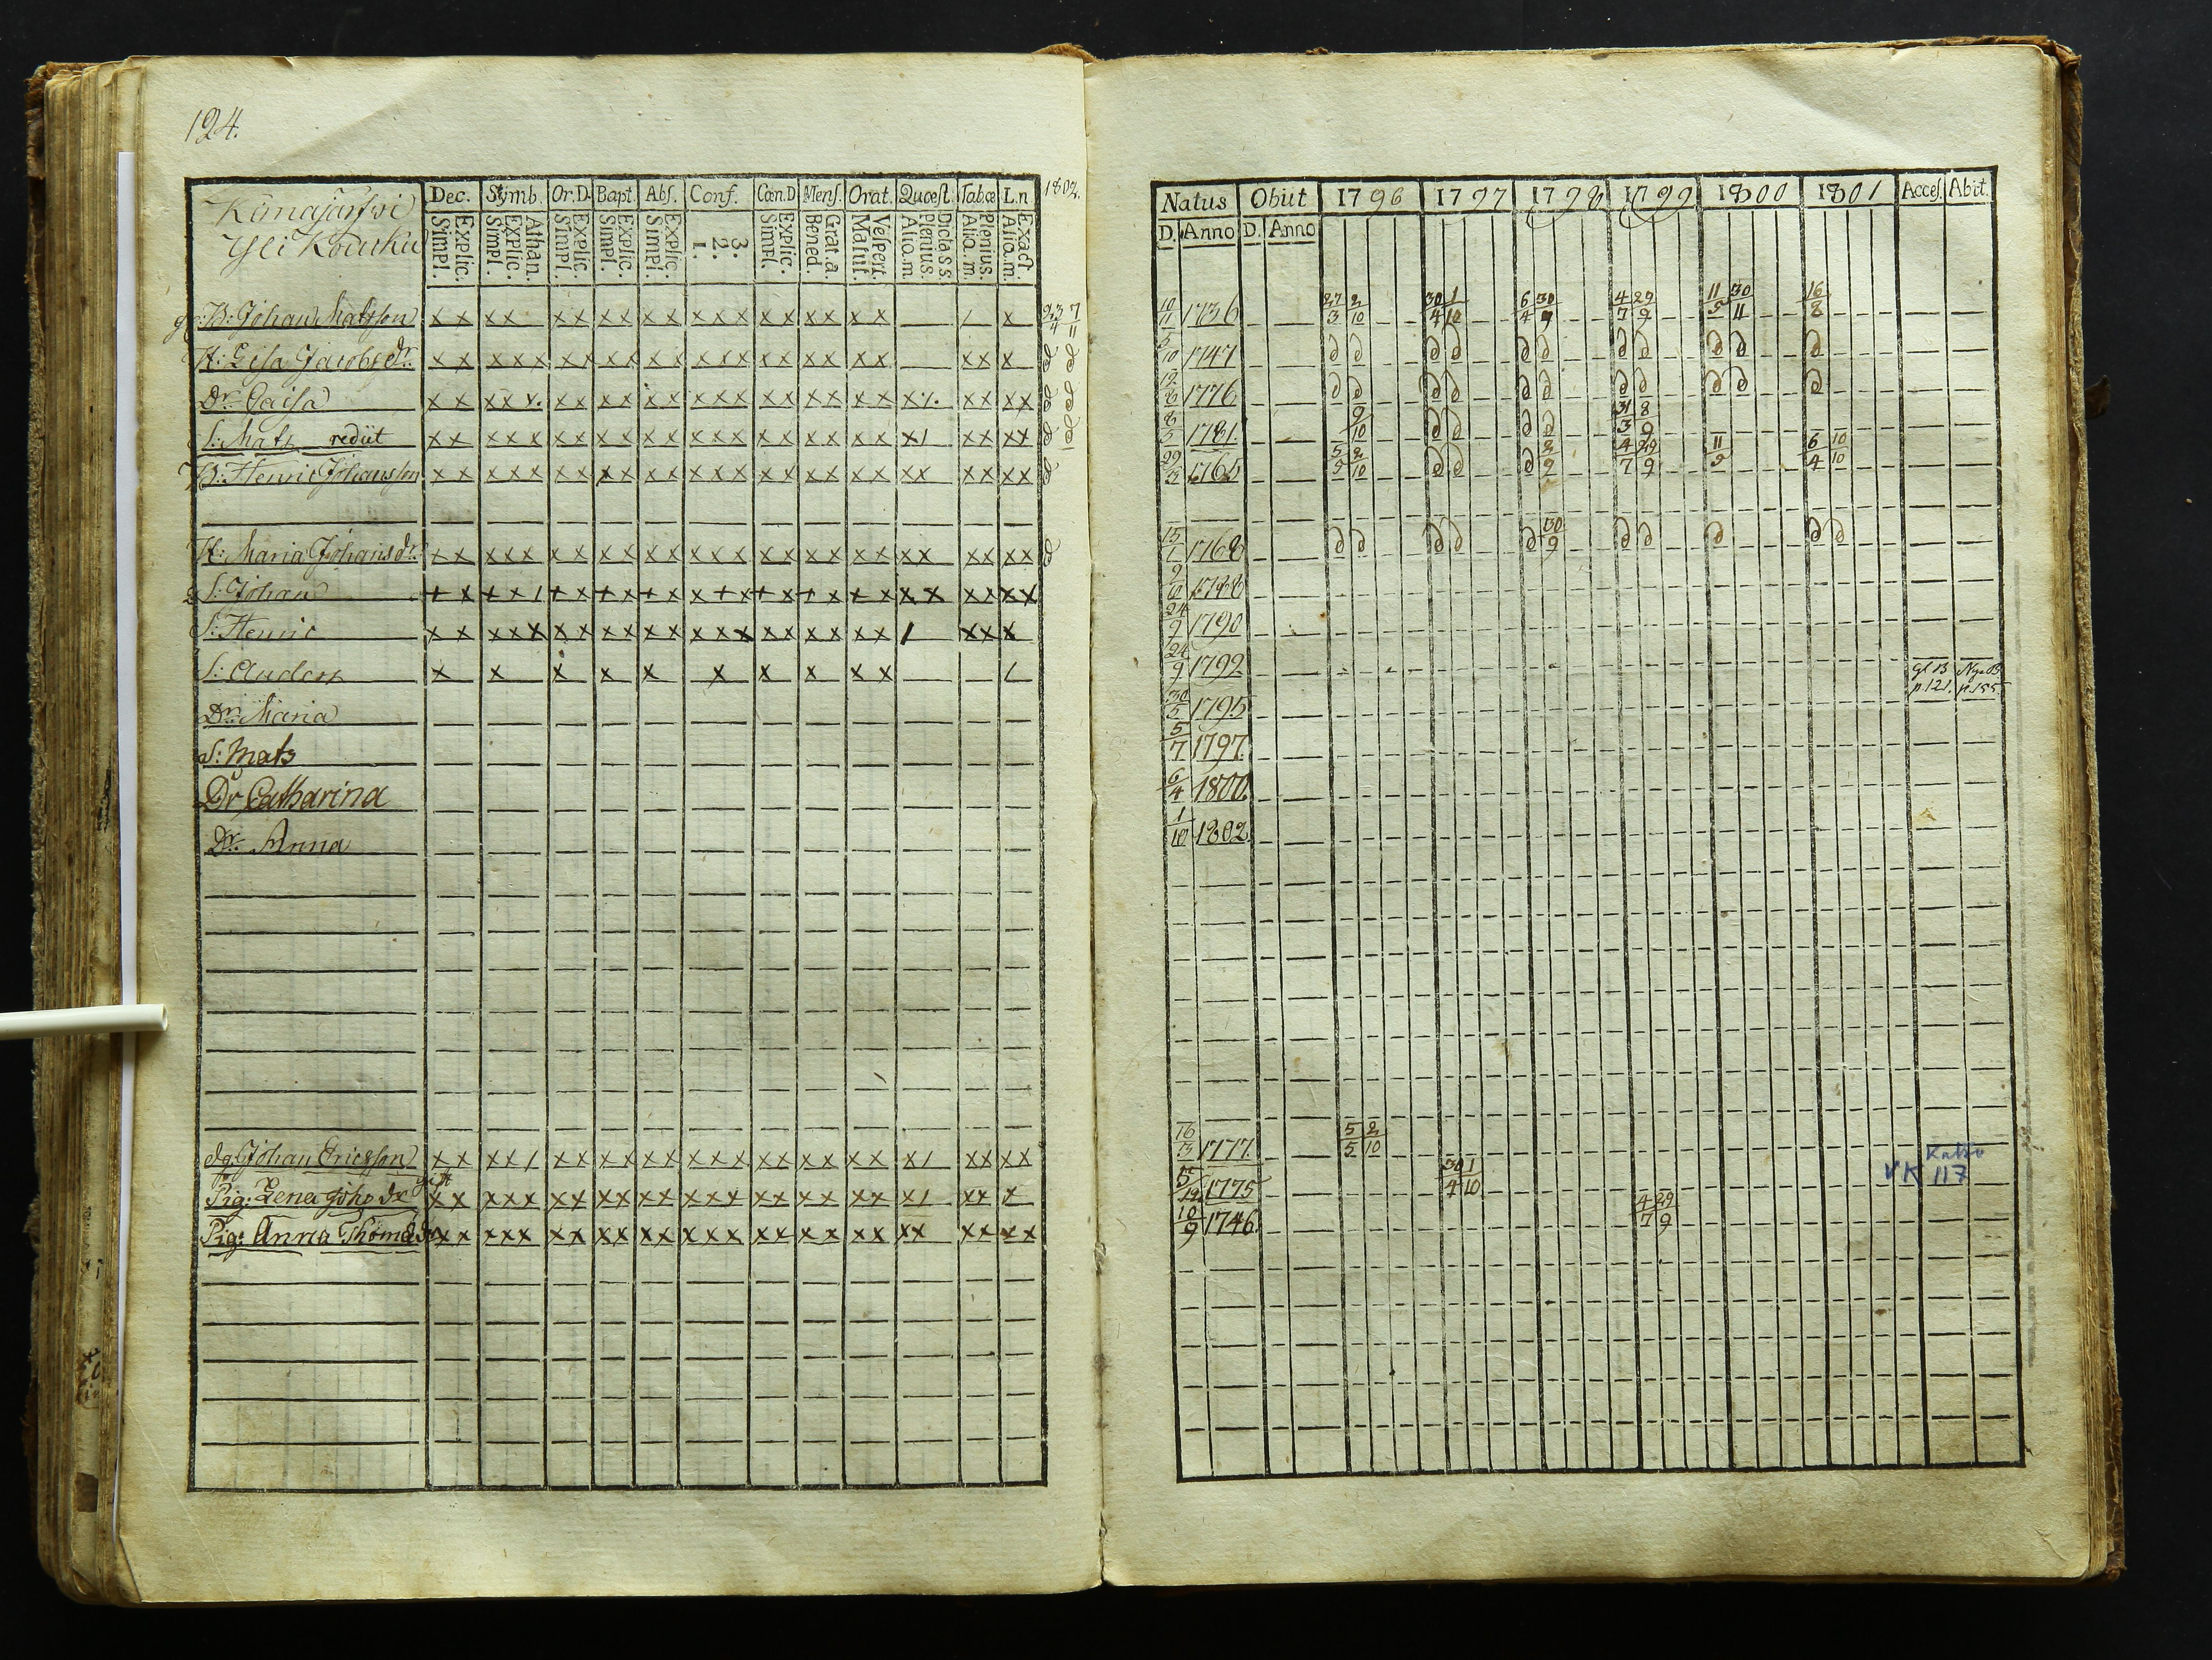 124.
Kimajärfwi
Yli Kouku
Dec. Symb. Or.D. Bapt. Abs. Conf. Cæn.D Mens. Orat. Quæst. Tabæ L.n 1802.
Explic. Simpl. Athan. Explic. Simpl. Explic. Simpl. Explic. Simpl. Explic. Simpl. 3. 2. 1. Explic. Simpl. Grat.a. Bened. Vespert. Matut. Dicta s s. Plenius. Aliq.m. Plenius. Aliq.m. Exact. Aliq.m.
B: Johan Matsson x x x x x x x x x x x x x x x x x x x x / x 23/4 7/11
H: Lisa Jacobsdr. x x x x x x x x x x x x x x x x x x x x x x x x d d
Dr. Caisa x x x x v. x x x x x x x x x x x x x x x x x /. x x x x d d
S: Mats rediit x x x x x x x x x x x x x x x x x x x x x / x x x x d d
B: Henric Johansson x x x x x x x x x x x x x x x x x x x x x x x x x x d
H: Maria Johansdr. x x x x x x x x x x x x x x x x x x x x x x x x x x d
S: Johan + x + x / + x + x + x x + x + x + x x x x x x x x x
S: Henric x x x x x x x x x x x x x x x x x x x x / x x x
S: Anders x x x x x x x x x x /
Dr. Maria
S: Mats
Dr Catharina
Dr. Anna
dg: Johan Ericsson x x x x / x x x x x x x x x x x x x x x x / x x x x
gift
Pig: Lena Johs dr x x x x x x x x x x x x x x x x x x x x x / x x x
Pig: Anna Thomædr x x x x x x x x x x x x x x x x x x x x x x x x x x
Natus Obiit 1796 1797 1798 1799 1800 1801 Acces. Abit.
D. Anno D. Anno
10/11 1736 27/3 2/10 30/4 1/10 6/4 30/9 4/7 29/9 11/5 30/11 16/8
5/10 1747 d d d d d d d d d d d
12/6 1776 d d d d d d d d d d d
8/5 1781. 9/10 d d d d 31/3 8/9
29/12 1765 5/5 2/10 d d d 2/9 4/7 29/9 11/5 6/4 10/10
15/1 1768 d d d d d 30/9 d d d d d
2/6 1788
24/7 1790
24/9 1792 Gl B p.121. Nya B. p.155.
30/5 1795
5/7 1797.
6/4 1800.
1/10 1802.
16/3 1777. 5/5 2/10
5/12 1775 30/4 1/10 Katso VK 117
10/9 1746. 4/7 29/9